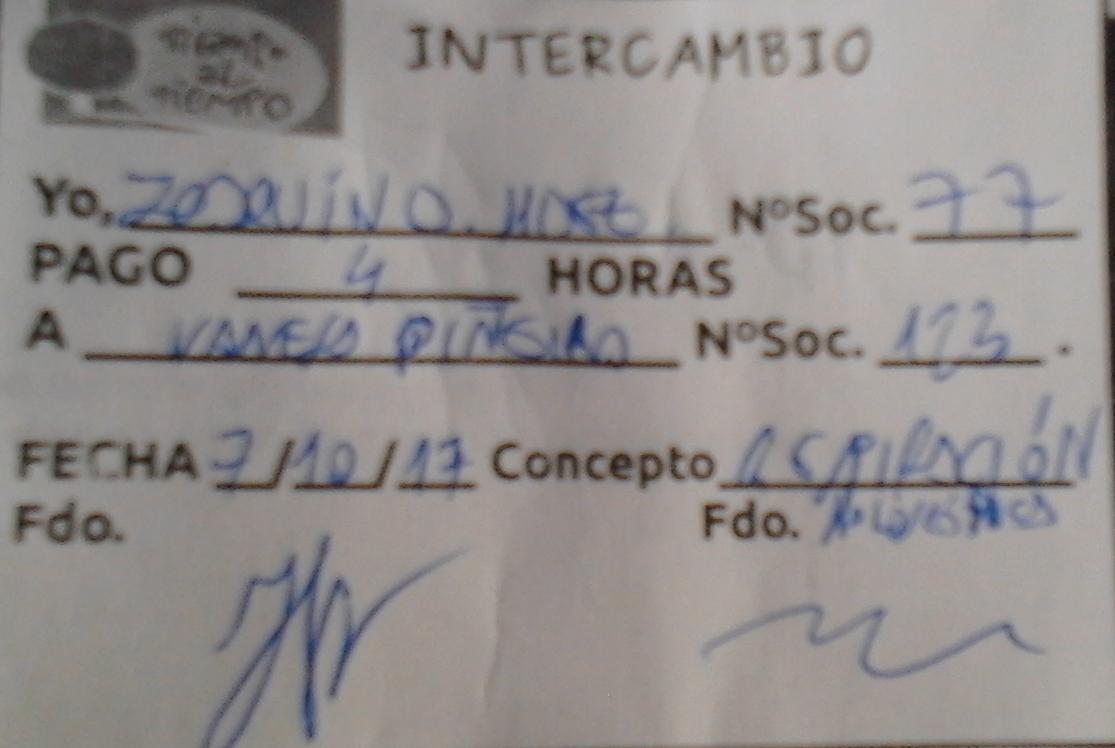 TIEMPO
AL
TIEMPO
INTERCAMBIO
Yo, NºSoc. 77
PAGO 4 HORAS
A VANESA PIÑEIRO NºSoc. 123.
FECHA 7/10/17 Concepto
Fdo. Fdo.